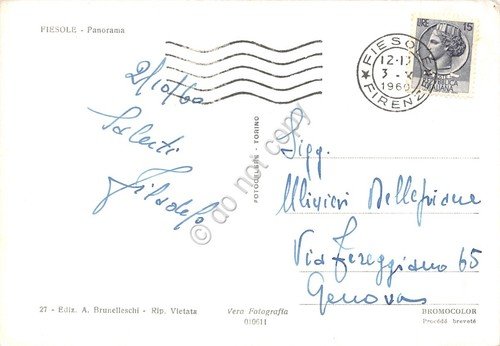 FIESOLE - Panorama
LIRE 15
FIESOLE
12-1
3 - X
1960
FIRENZE
2/10/60
Saluti
FOTOCELERE - TORINO
do not copy
Sigg.
Ulivieri Dellepiane
Via Fereggiano 65
Genova
27 - Ediz. A. Brunelleschi - Rip. Vietata
Vera Fotografia
010611
BROMOCOLOR
Procédé breveté